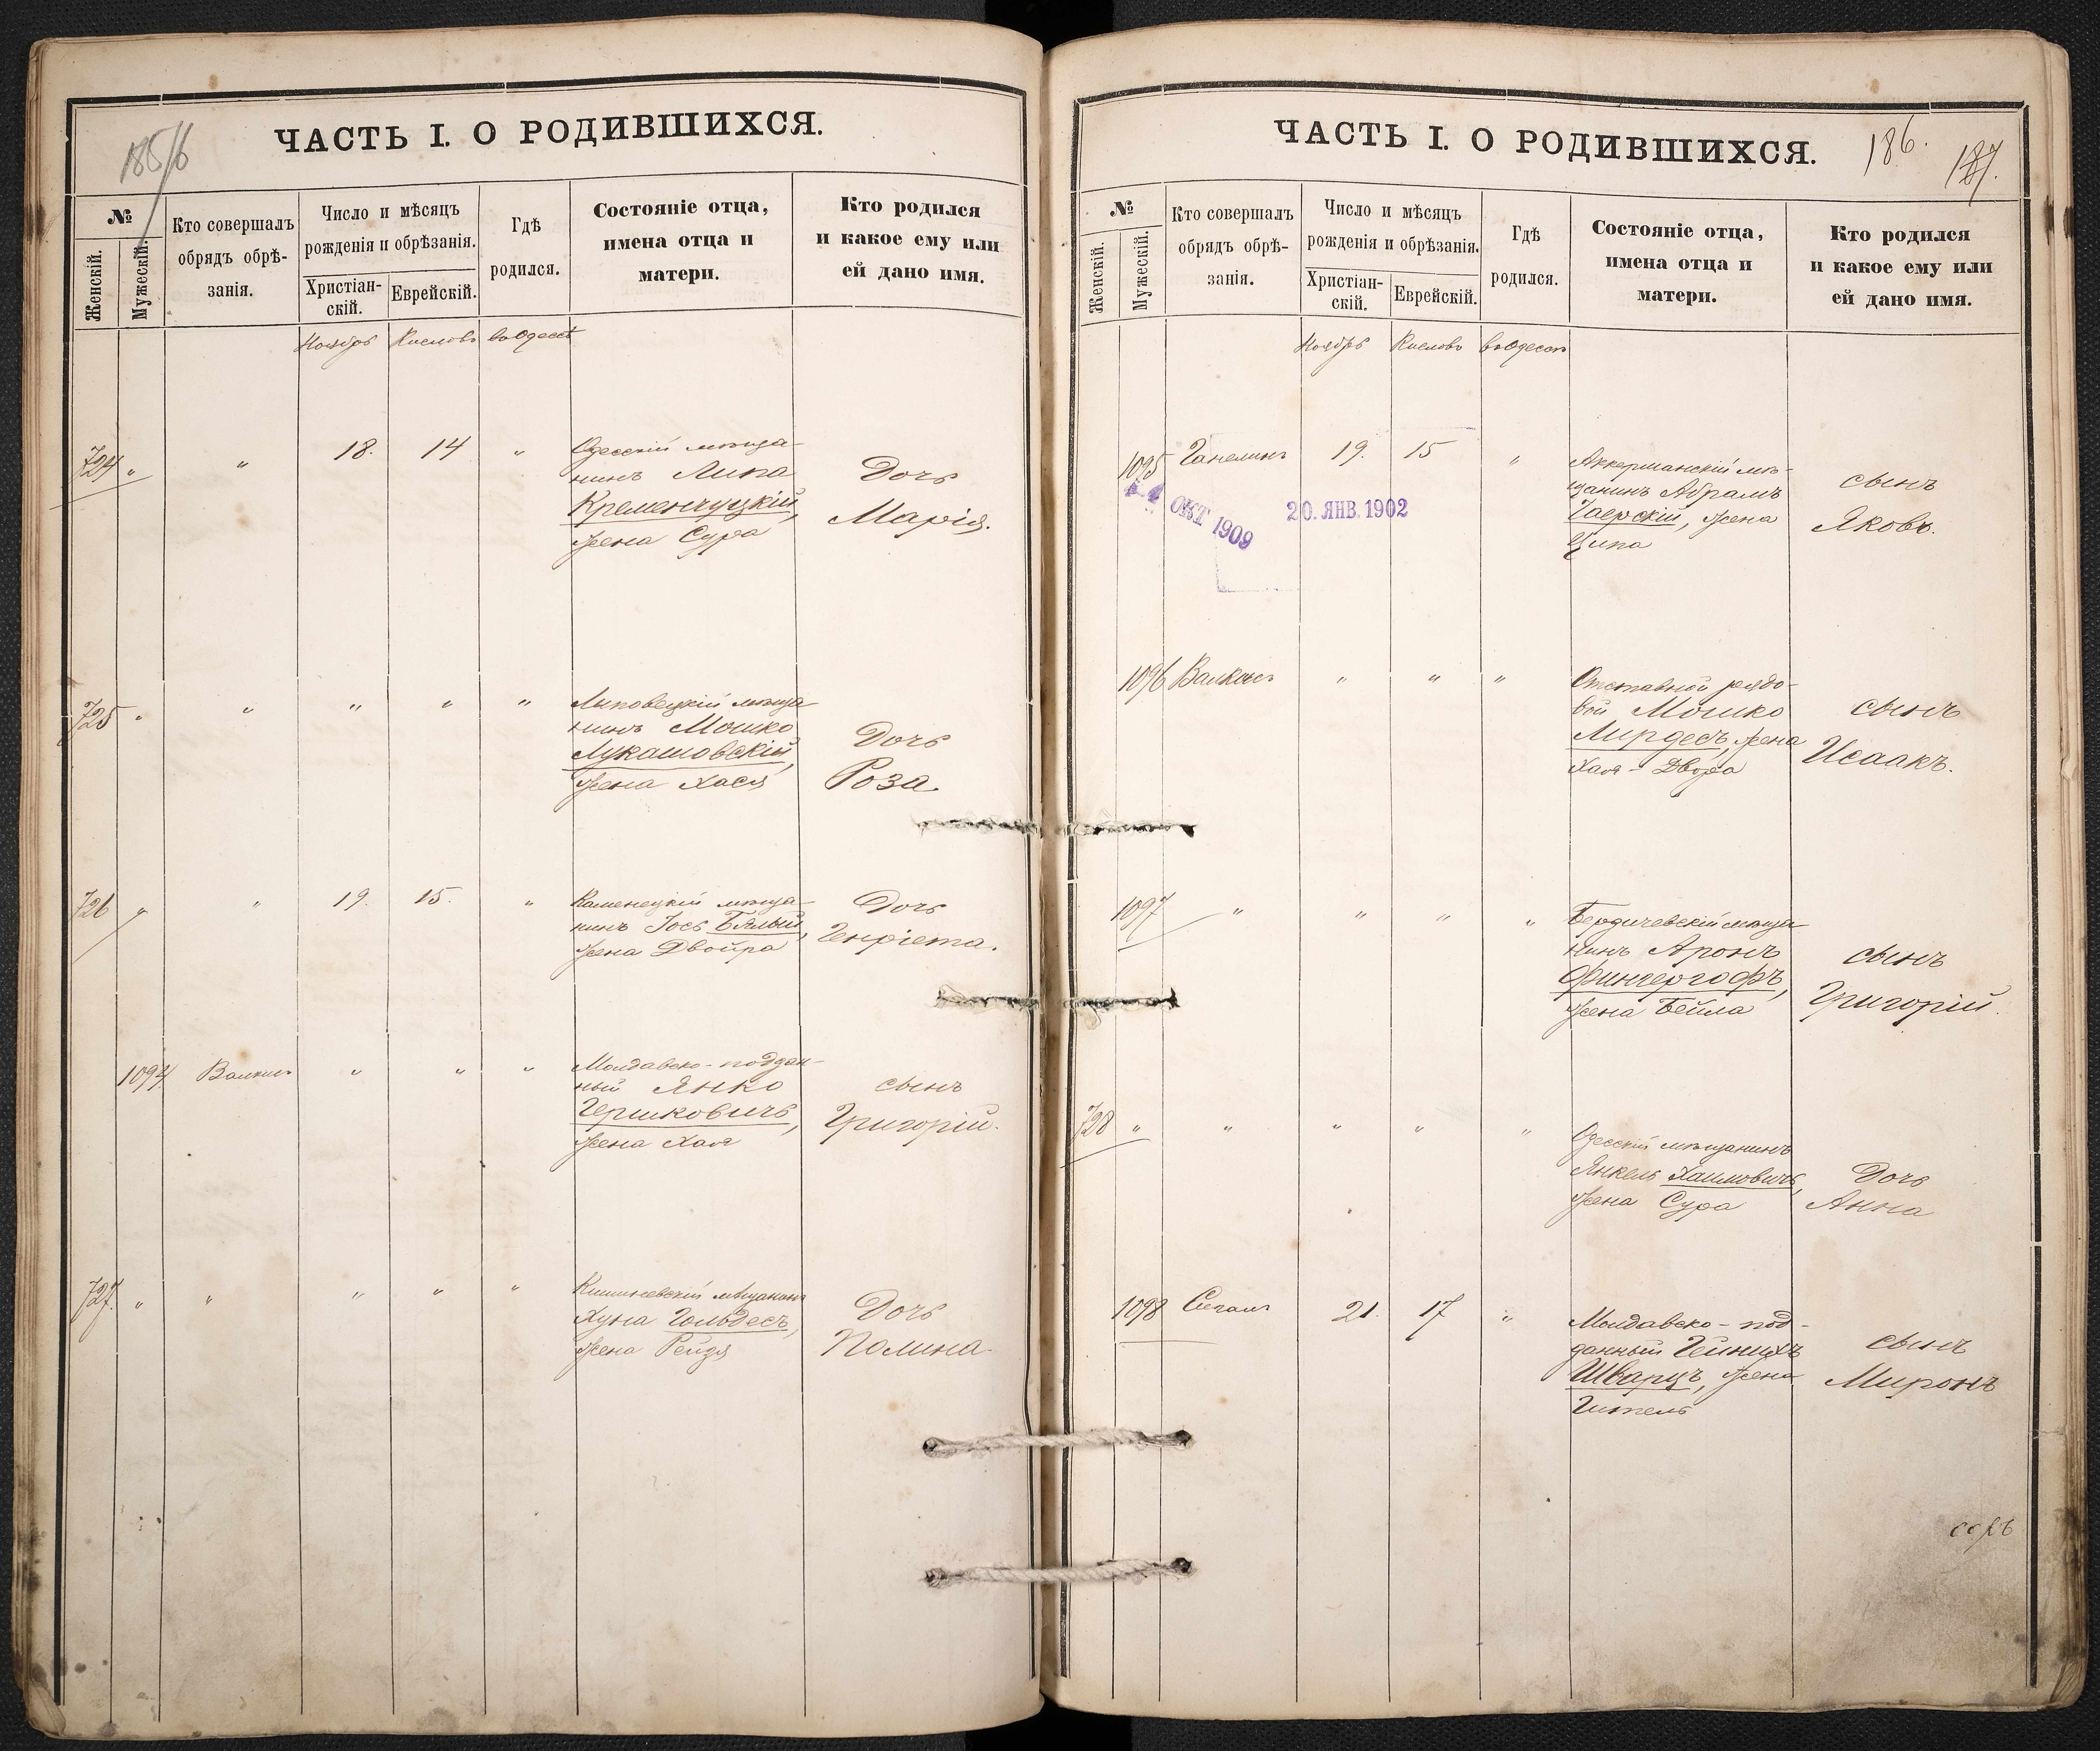 185/6
ЧАСТЬ I. О РОДИВШИХСЯ.
№
Женскій.
Мужескій.
Кто совершалъ
обрядъ обрѣ-
занія.
Число и мѣсяцъ
рожденія и обрѣзанія.
Христіан-
скій.
Еврейскій.
Гдѣ
родился.
Состояніе отца,
имена отца и
матери.
Кто родился
и какое ему или
ей дано имя.
Ноябрь Кислевъ въ Одессѣ
724 " " 18. 14 " Одесскій мѣща-
нинъ Липа
Кременчуцкій,
жена Сура
Дочь
Марія.
725 " " " " " Липовецкій мѣща
нинъ Мошко
Лукашовскій,
жена Хася
Дочь
Роза.
726 " " 19. 15. " Каменецкій мѣща-
нинъ Іось Бѣлый,
жена Двойра
Дочь
Генріета.
1094 Валкисъ " " " Молдавско-поддан-
ный Янко
Гершковичъ,
жена Хая
сынъ
Григорій.
727. " " " " " Кишиневскій мѣщанинъ
Хуна Гольдесъ,
жена Рейзя
Дочь
Полина
ЧАСТЬ I. О РОДИВШИХСЯ.
186.
187.
№
Женскій.
Мужескій.
Кто совершалъ
обрядъ обрѣ-
занія.
Число и мѣсяцъ
рожденія и обрѣзанія.
Христіан-
скій.
Еврейскій.
Гдѣ
родился.
Состояніе отца,
имена отца и
матери.
Кто родился
и какое ему или
ей дано имя.
Ноябрь Кислевъ въ Одессѣ
1095 Ганелинъ 19. 15 " Аккерманскій мѣ-
щанинъ Абрамъ
Гаерскій, жена
Ципа
сынъ
Яковъ.
4 ОКТ 1909
20. ЯНВ. 1902
1096 Валкисъ " " " Отставной рядо-
вой Мошко
Мирдесъ, жена
Хая-Двора
сынъ
Исаакъ.
1097 " " " " Бердичевскій мѣща
нинъ Аронъ
Фингергофъ,
жена Бейла
сынъ
Григорій.
728 " " " " " Одесскій мѣщанинъ
Янкель Хаимовичъ,
жена Сура
Дочь
Анна
1098 Сегалъ 21. 17 " Молдавско-под-
данный Гейнихъ
Шварцъ, жена
Гитель
сынъ
Миронъ